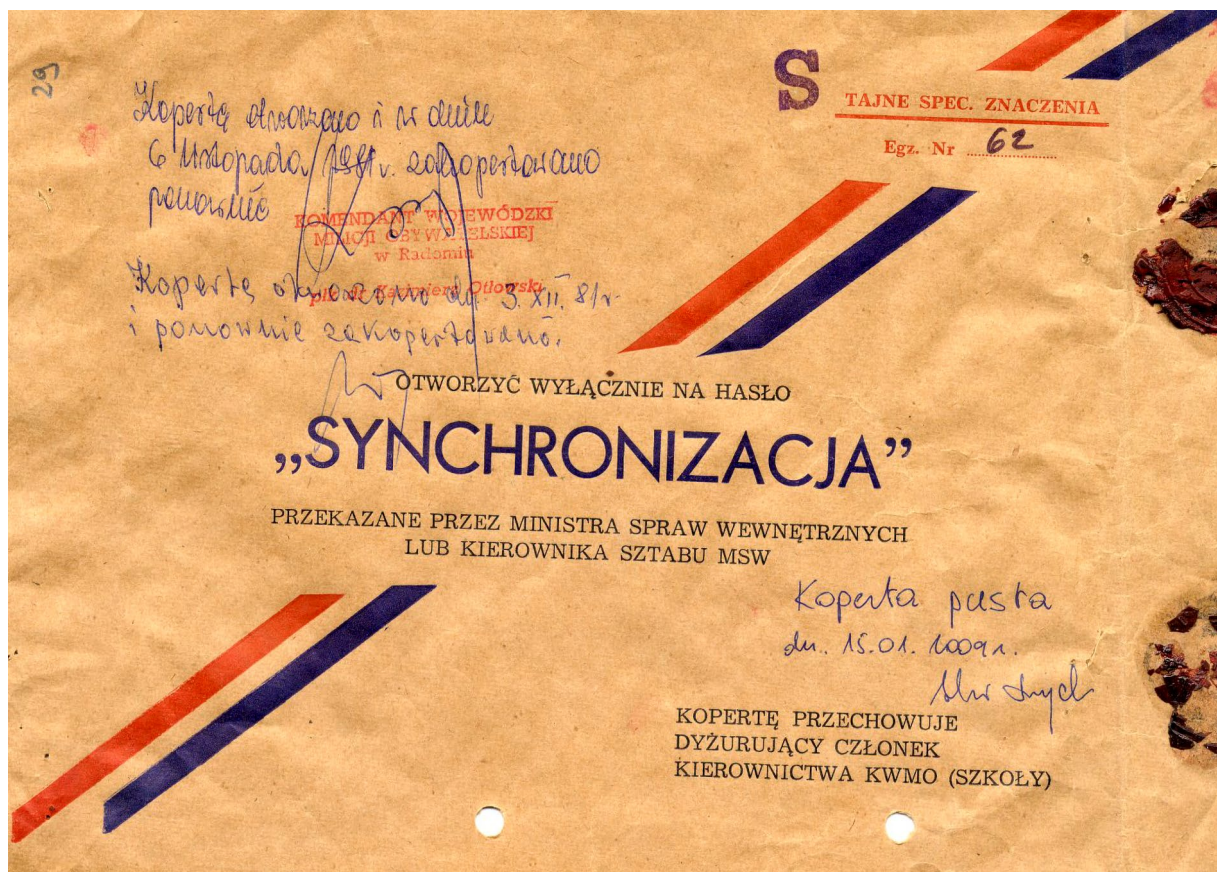 29
Kopertę otworzono i w dniu
6 listopada 1981 r. zakopertowano
ponownie
KOMENDANT WOJEWÓDZKI
MILICJI OBYWATELSKIEJ
w Radomiu
płk Kazimierz Otłowski
Kopertę otworzono dn. 3.XII.81r.
i ponownie zakopertowano.
S
TAJNE SPEC. ZNACZENIA
Egz. Nr 62
OTWORZYĆ WYŁĄCZNIE NA HASŁO
„SYNCHRONIZACJA”
PRZEKAZANE PRZEZ MINISTRA SPRAW WEWNĘTRZNYCH
LUB KIEROWNIKA SZTABU MSW
Koperta pusta
dn. 15.01.2009r.
KOPERTĘ PRZECHOWUJE
DYŻURUJĄCY CZŁONEK
KIEROWNICTWA KWMO (SZKOŁY)